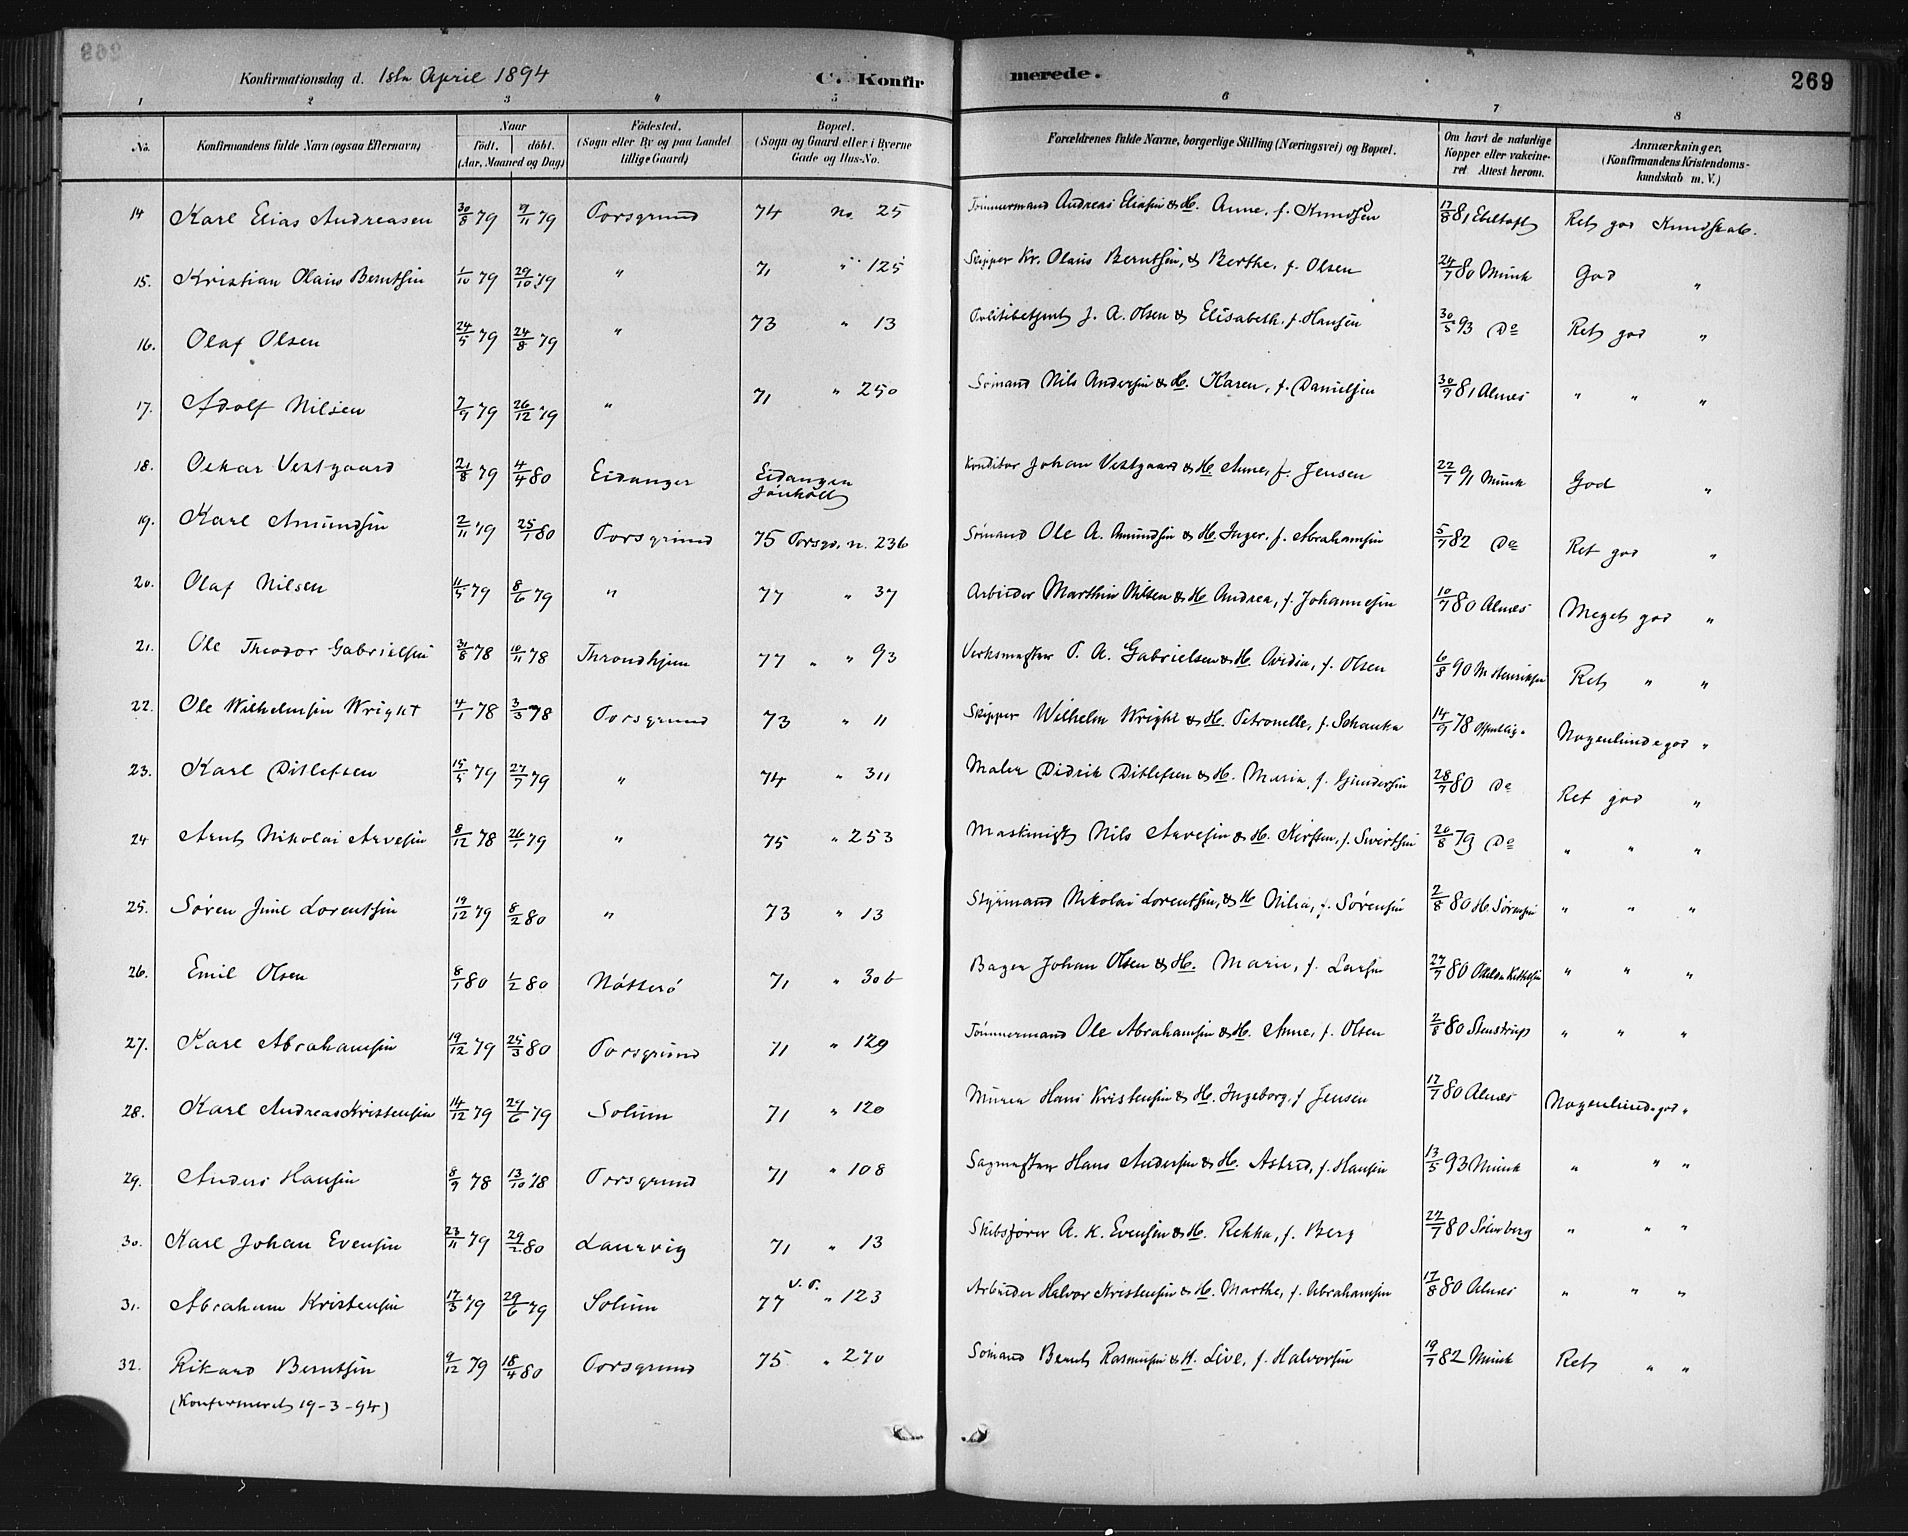 Konfirmationsdag d. 1ste April 1894 C. Konfirmerede. 269
1 2 3 4 5 6 7 8
No. Konfirmandens fulde Navn (ogsaa Efternavn) Naar födt. döbt. (Aar, Maaned og Dag) Födested. (Sogn eller By og paa Landet tillige Gaard) Bopæl. (Sogn og Gaard eller i Byerne Gade og Hus-No. Forældrenes fulde Navne, borgerlige Stilling (Næringsvei) og Bopæl. Om havt de naturlige Kopper eller vakcineret Attest herom. Anmærkninger, (Konfirmandens Kristendomskundskab m. V.)
14 Karl Elias Andreasen 30/8 79 7/11 79 Porsgrund 74 no. 25 Tömmermand Andreas Eliasen & H. Anne, f. Knudsen 17/8 81 Ebeltoft Ret god Kundskab.
15. Kristian Olaus Berntsen 1/10 79 29/10 79 " 71 " 125 Skipper Kr. Olaus Berntsen, & Berthe, f. Olsen 24/7 80 Munk God "
16. Olaf Olsen 24/5 79 24/8 79 " 73 " 13 Politibetjent J. A. Olsen & Elisabeth, f. Hansen 30/5 93 Do Ret god "
17. Adolf Nilsen 7/9 79 26/12 79 " 71 " 250 Sömand Nils Andersen & H. Karen, f. Danielsen 30/9 81 Alnæs " " "
18. Oskar Vestgaard 21/8 79 4/4 80 Eidanger Eidanger Jönholt Konditor Johan Vestgaard & H. Anne, f. Jensen 22/7 91 Munk God "
19. Karl Amundsen 2/11 79 25/1 80 Porsgrund 75 Porsgr. n. 236 Sømand Ole A. Amundsen & H. Inger, f. Abrahamsen 5/7 82 Do Ret god "
20. Olaf Nilsen 11/5 79 8/6 79 " 77 " 37 Arbeider Marthin Nilsen & H. Andrea, f. Johannesen 10/7 80 Alnæs Meget god "
21. Ole Theodor Gabrielsen 31/8 78 10/11 78 Throndhjem 77 " " 93 Verksmester P. A. Gabrielsen & H. Ovidia, f. Olsen 16/8 90 M Henriksen Ret " "
22. Ole Wilhelmsen Wright 4/1 78 3/3 78 Porsgrund 73 " 11 Skipper Wilhelm Wright & H. Petronelle, f. Schanke 14/9 78 Offentlig. Nogenlunde god "
23. Karl Ditlefsen 15/5 79 27/7 79 " 74 " 311 Maler Didrik Ditlefsen & H. Maria, f. Gundersen 28/7 80 Do Ret god "
24 Arnt Nikolai Arvesen 8/12 78 26/1 79 " 75 " 253 Maskinist Nils Arvesen & H. Kirsten, f. Sivertsen 20/8 79 Do " " "
25. Søren Juul Lorentsen 19/12 79 8/2 80 " 73 " 13 Styrmand Nikolai Lorentsen, & H Nilia, f. Sørensen 2/8 80 H. Sørensen " " "
26. Emil Olsen 8/1 80 1/2 80 Nötterö 71 " 306 Bager Johan Olsen & H. Marie, f. Larsen 27/7 80 " " "
27. Karl Abrahamsen 19/12 79 25/3 80 Porsgrund 71 " 129 Tömmermand Ole Abrahamsen & H. Anne, f. Olsen 2/8 80 Stenstrup " " "
28. Karl Andreas Kristensen 14/12 79 27/6 79 Solum 71 " 120 Murer Hans Kristensen & H. Ingeborg, f Jensen 17/7 80 Alnæs Nogenlunde god "
29. Anders Hansen 8/9 78 13/10 78 Porsgrund 71 " 108 Sagmester Hans Andersen & H. Astrid, f. Hansen 13/5 93 Munk " " "
30. Karl Johan Evensen 23/11 79 29/2 80 Laurvig 71 " 13 Skibsfører A. K. Evensen & H. Rekka, f. Berg 27/7 80 Sølverberg " " "
31. Abraham Kristensen 17/5 79 29/6 79 Solum 77 V. P. " 123 Arbeider Halvor Kristensen & H. Marthe, f. Abrahamsen 17/8 80 Alnæs " " "
32. Rikard Berntsen 9/12 79 18/4 80 Porsgrund 75 " 270 Sömand Bernt Rasmusen & H. Live, f. Halvorsen 19/7 82 Munk Ret " "
(Konfermeret 19-3-94)